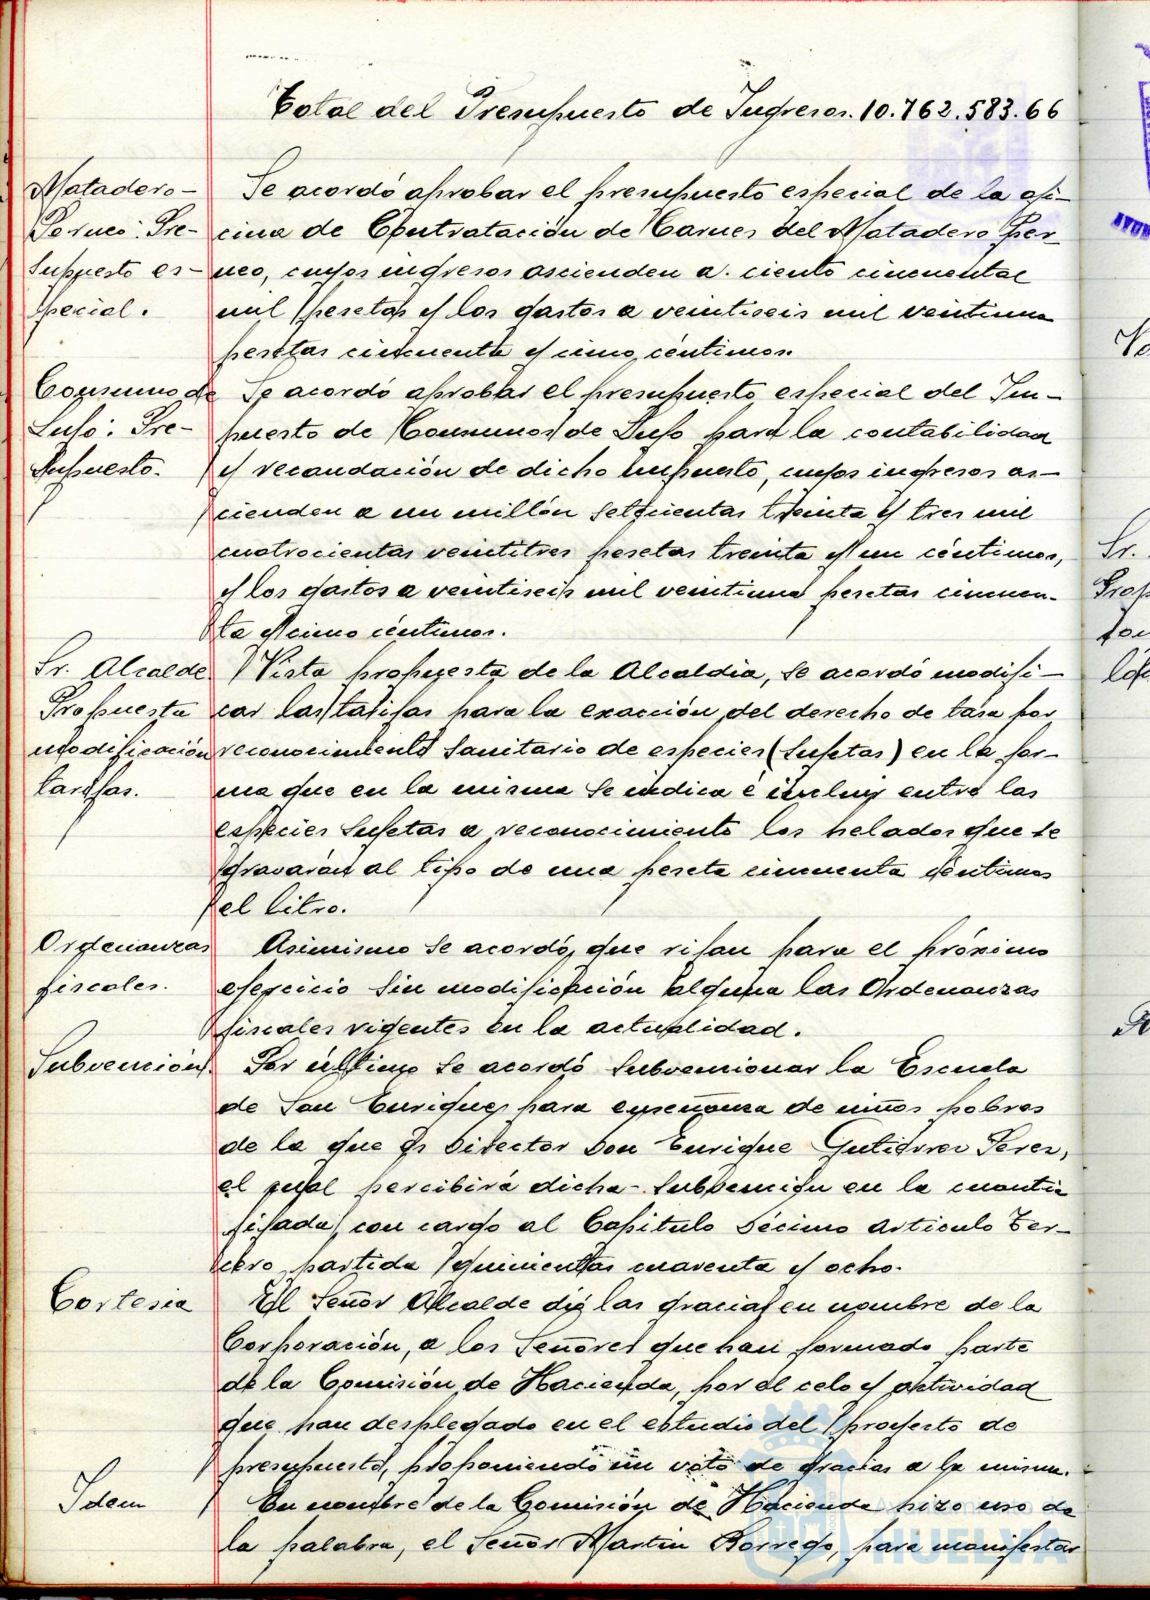 Total del Presupuesto de Ingresos. 10.762.583.66
Matadero-
Porneo: Pre-
supuesto es-
pecial.
Se acordó aprobar el presupuesto especial de la ofi-
cina de Contratación de Carnes del Matadero Por
neo, cuyos ingresos ascienden a ciento cincuenta
mil pesetas y los gastos a veintiseis mil veintiuna
pesetas cincuenta y cinco céntimos.
Consumo de
Lujo: Pre-
supuesto.
Se acordó aprobar el presupuesto especial del Im-
puesto de Consumos de Lujo para la contabilidad
y recaudación de dicho impuesto, cuyos ingresos as-
cienden a un millón setecientas treinta y tres mil
cuatrocientas veintitres pesetas treinta y un céntimos,
y los gastos a veintiseis mil veintiuna pesetas cincuen-
ta y cinco céntimos.
Sr. Alcalde
Propuesta
modificación
tarifas.
Vista propuesta de la Alcaldia, se acordó modifi-
car las tarifas para la exacción del derecho de tasa por
reconocimiento sanitario de especies (sujetas) en la for-
ma que en la misma se indica é incluir entre las
especies sujetas a reconocimiento los helados que se
gravarán al tipo de una peseta cincuenta céntimos
el litro.
Ordenanzas
fiscales.
Asimismo se acordó, que rijan para el próximo
ejercicio sin modificación alguna las Ordenanzas
fiscales vigentes en la actualidad.
Subvención.
Por último se acordó subvencionar la Escuela
de San Enrique, para enseñanza de niños pobres
de la que es Director Don Enrique Gutiérrez Perez,
el cual percibirá dicha subvención en la cuantia
fijada, con cargo al Capitulo Décimo articulo Ter-
cero, partida quinientas cuarenta y ocho.
Cortesia
El Señor Alcalde dió las gracias en nombre de la
Corporación, a los Señores que han formado parte
de la Comisión de Hacienda, por el celo y actividad
que han desplegado en el estudio del proyecto de
presupuesto, proponiendo un voto de gracias a la misma.
Idem
En nombre de la Comisión de Hacienda hizo uso de
la palabra, el Señor Martin Borrego, para manifestar
HUELVA